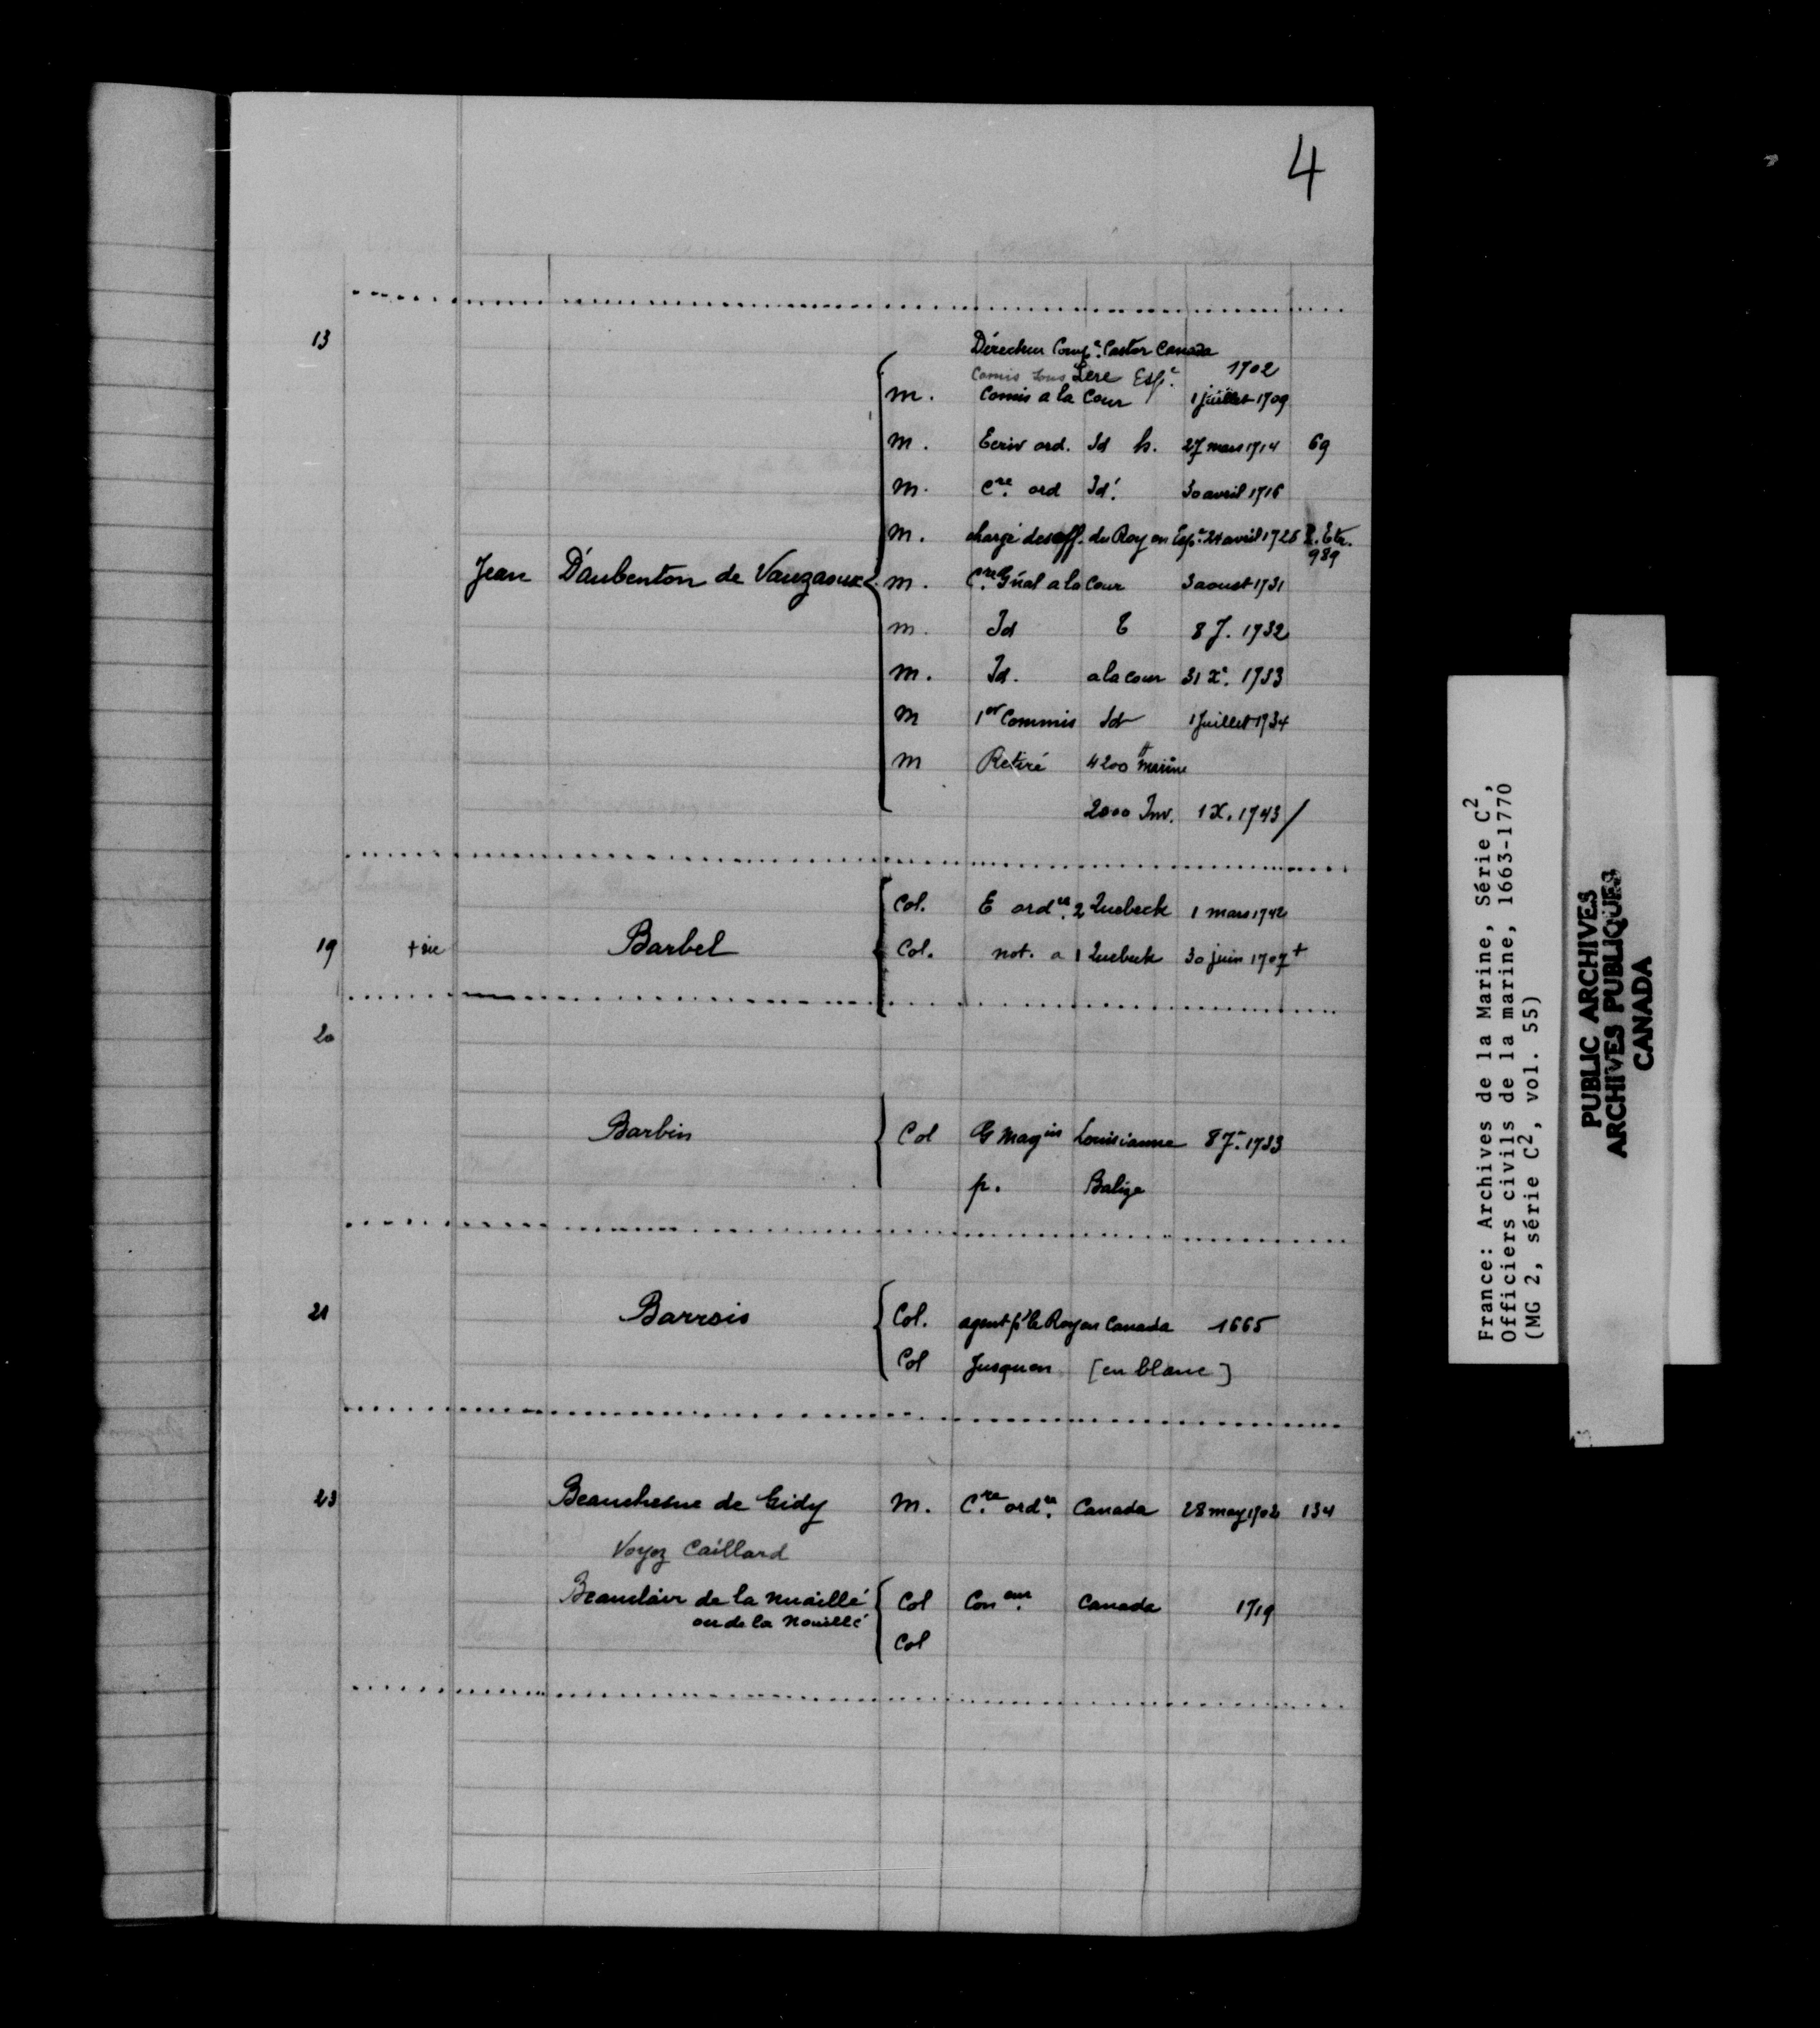 4
13
Directeur Comp.e Castor Canada
Comis sous Lere Esp.e 1702
m. Comis a la Cour 1 juillet 1709
m. Ecriv ord. Id h. 27 mars 1714 69
m. C.re ord Id. 30 avril 1716
m. chargé des aff. du Roy en Esp.e 24 avril 1726 R. Etr. 989
Jean D'aubenton de Vaugaoux m. C.re Gñal a la Cour 3 aoust 1731
m. Id E 8 J. 1732
m. Id. a la cour 31 X.e 1733
m 1er Commis Id 1 Juillet 1734
m Retiré 4200 # marine
2000 Inv. 1 X. 1743 /
Col. E ord.re 2 Quebeck 1 mars 1742
19 + sic Barbel Col. not. a 1 Quebeck 30 juin 1707 +
20
Barbin Col G Magin Louisianne 8 J. 1733
p. Balize
21 Barrois Col. agent pr le Roy en Canada 1665
Col Jusqu en [en blanc]
23 Beauchesne de Gidy m. C.re ord.re Canada 28 may 1702 134
Voyez Caillard
Beauclair de la nuaillé Col Con eur. Canada 1719
ou de la Nouillé
Col
France: Archives de la Marine, Série C2,
Officiers civils de la marine, 1663-1770
(MG 2, série C2, vol. 55)
PUBLIC ARCHIVES
ARCHIVES PUBLIQUES
CANADA